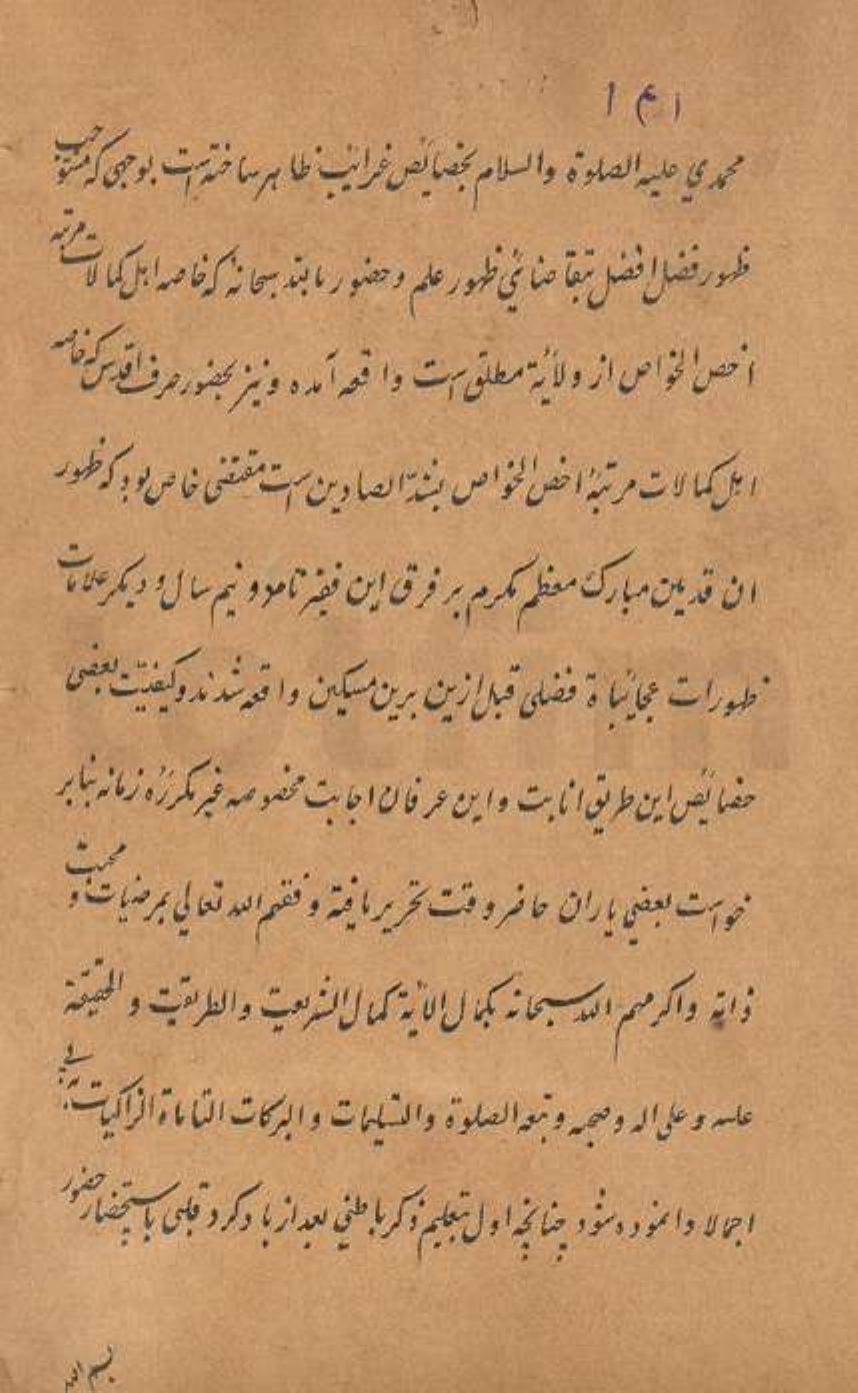 ۱۴۱
محمدي عليه الصلوة والسلام بخصائص غرائب ظاهر ساخته است بوجهی که مستوجب
ظهور فضل افضل بتقاضائ ظهور علم و حضور مابند سبحانهٔ که خاصه اهل کمالات مرتبه
اخص الخواص از ولأية مطلق است واقعه آمده و نیز بحضور صرف اقدس که خاصه
اهل کمالات مرتبهٔ اخص الخواص است مقتضی خاص بود که ظهور
ان قدمین مبارک معظم مکرم بر فرق این فقیر تامدو نیم سال و دیکر علامات
ظهورات فضلی قبل ازین برین مسکین واقعه شدند و کیفیّت بعضی
خصائص این طریق انابت و این عرفان اجابت مخصوصه غیر مکررهٔ زمانه بنابر
خواست بعضي یاران حاضر وقت تحریر یافته وفقهم الله تعالي بمرضیات و محبت
ذاته واکرمهم الله سبحانه بکمال الأیة کمال الشریعت والطریقت و الحقیقة
علیه و علی اله وصحبه و تبعه الصلوة والتسلیمات والبرکات التامات الزاکیات
اجمالا وانموده شود چنانچه اول بتعلیم ذکر باطني بعد از یاد کرد قلبی باستحضار حضور
بسم الله